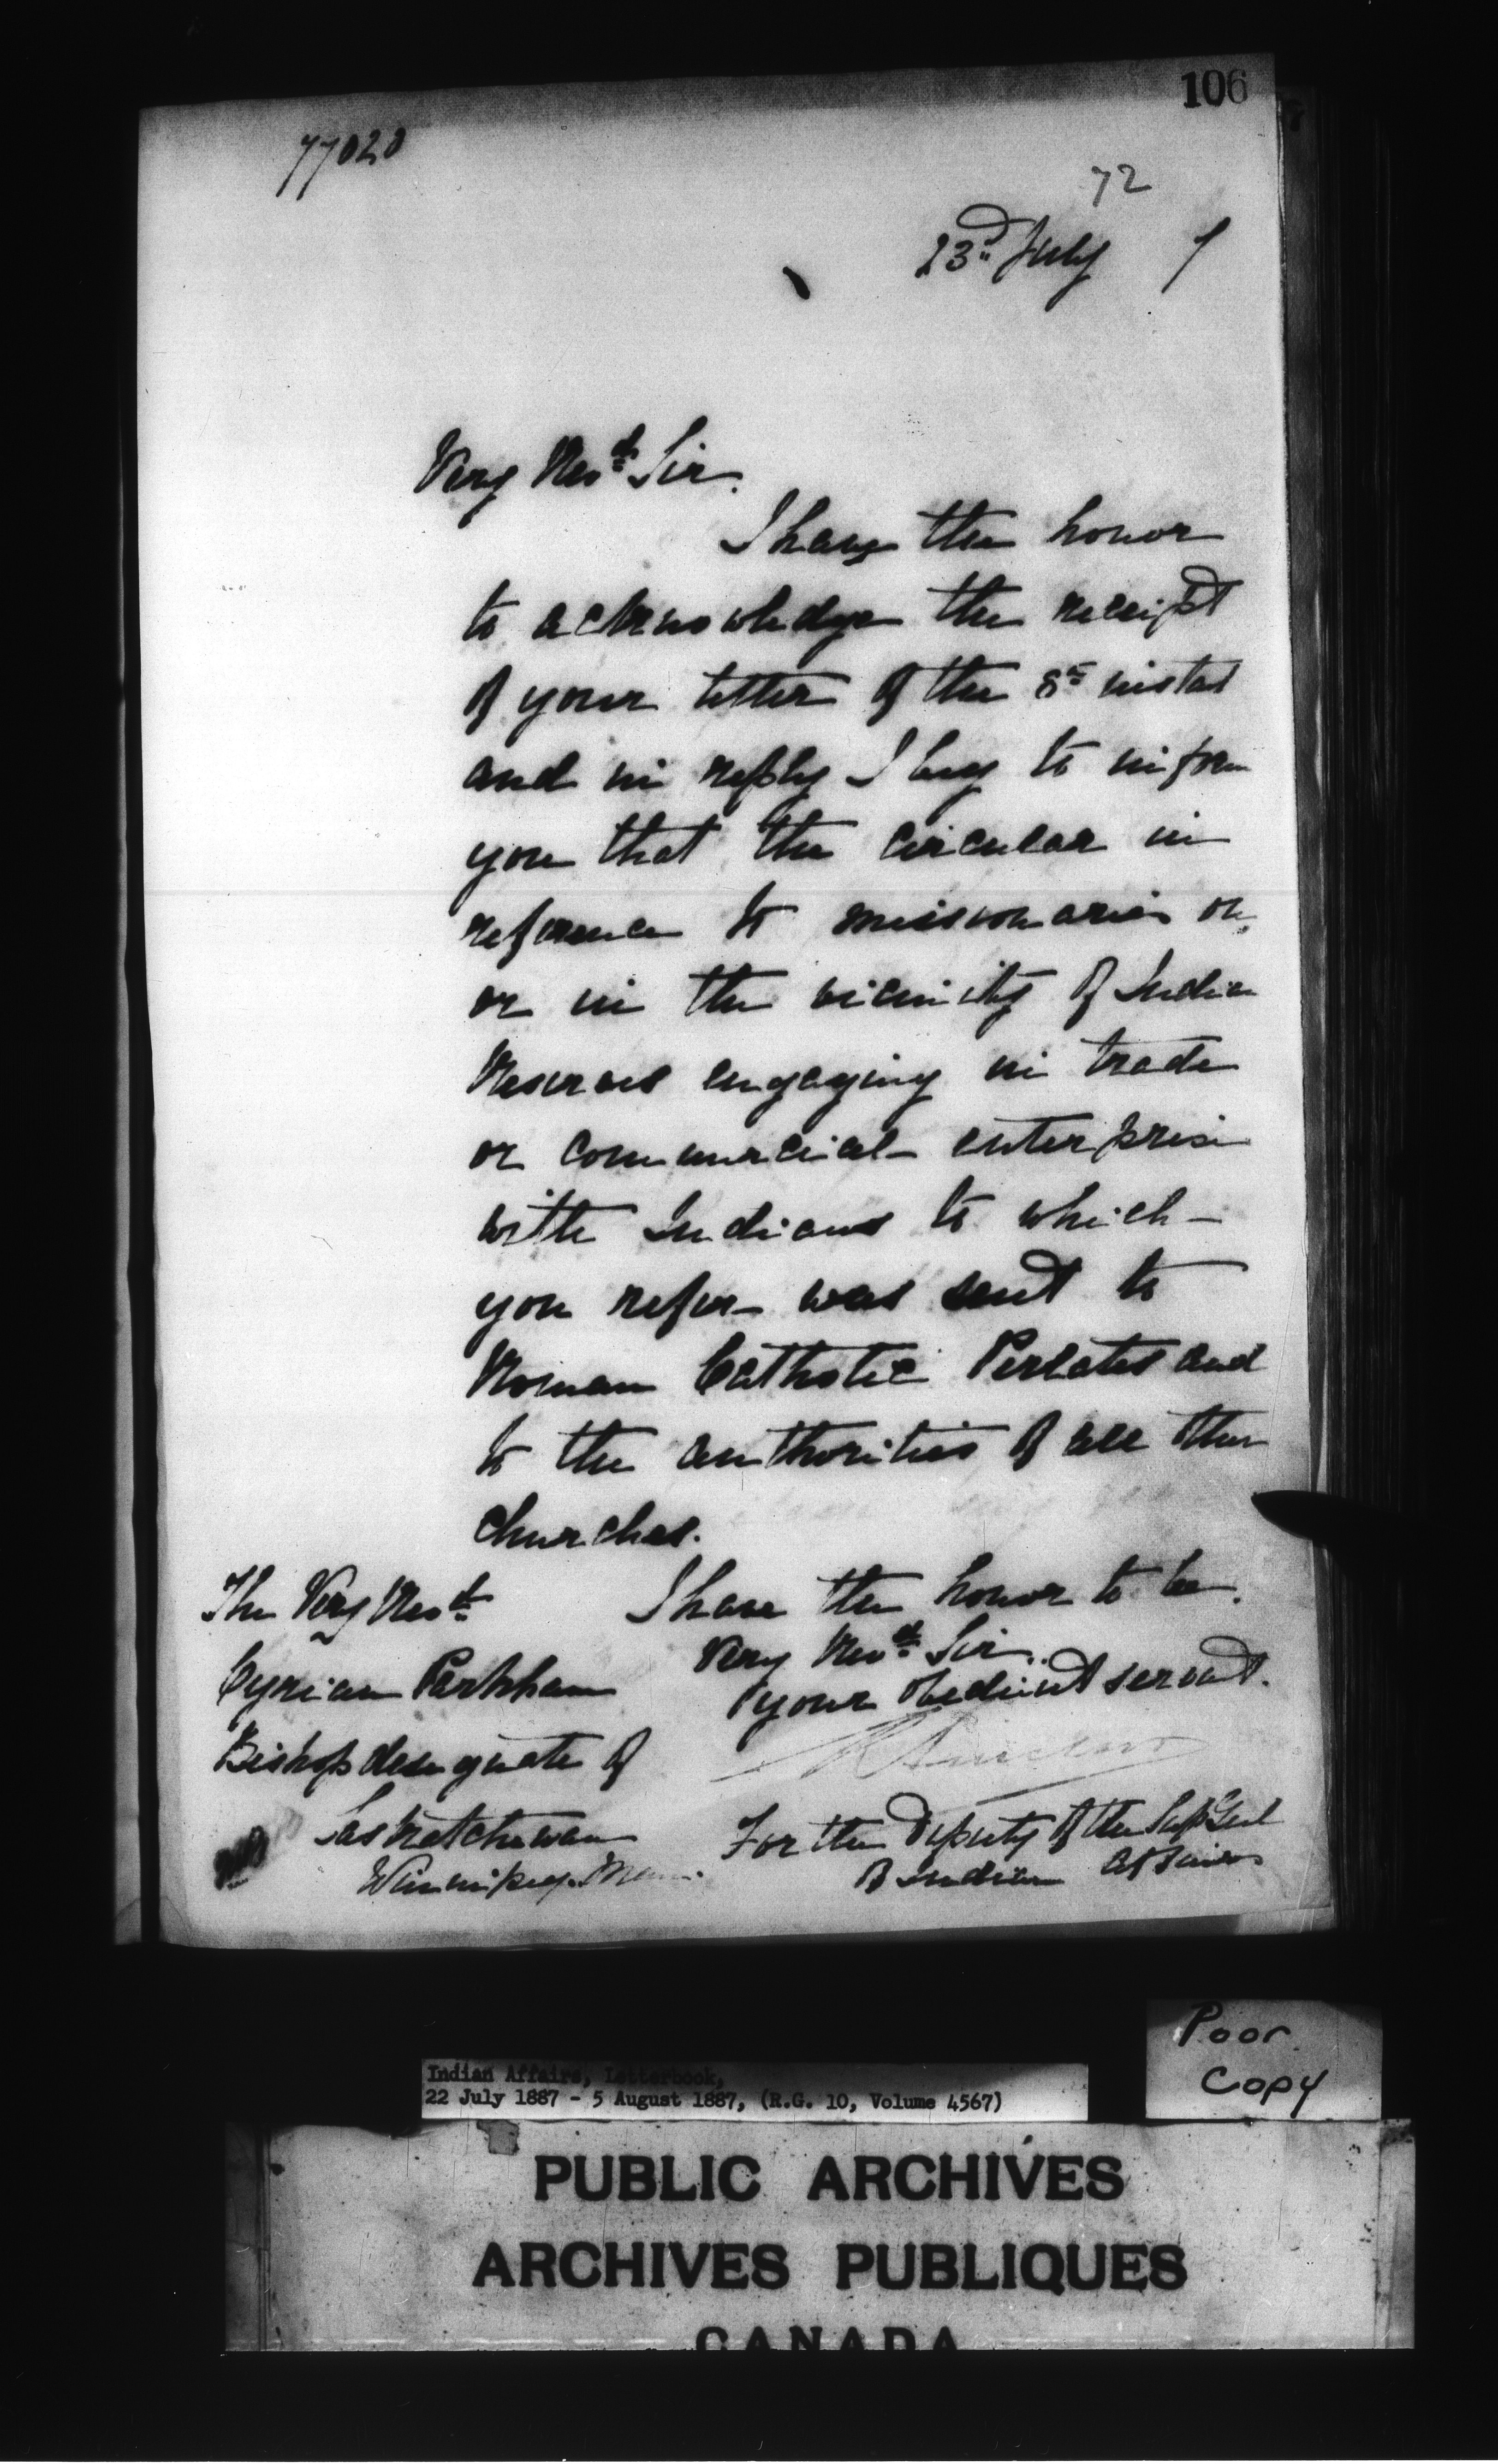 106
77020
72
23rd July 7
Very Revd Sir.
I have the honor
to acknowledge the receipt
of your letter of the 8th instat
and in reply I beg to inform
you that the circular in
reference to missionaries on,
or in the vicinity of Indian
Reserves engaging in trade
or commercial enterprise
with Indians to which
you refer was sent to
Roman Catholic Perlates and
to the authorities of all other
churches.
I have the honor to be,
Very Revd Sir.
your obedient servant.
The Very Revd
Cyrian Pinkham
Bishop designate of
Saskatchewan
Winnipeg. Man.
R Sinclair
For the Deputy of the Supt Genl
of Indian Affairs
Poor
Copy
Indian Affairs, Letterbook,
22 July 1887 - 5 August 1887, (R.G. 10, Volume 4567)
PUBLIC ARCHIVES
ARCHIVES PUBLIQUES
CANADA